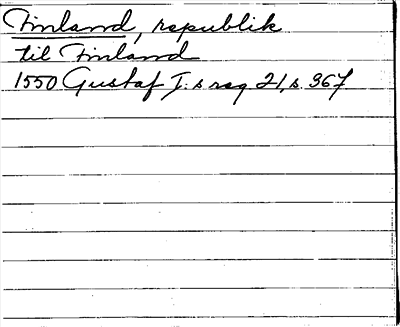 Finland, republik
til Finland
1550 Gustaf I:s reg 21, s. 367